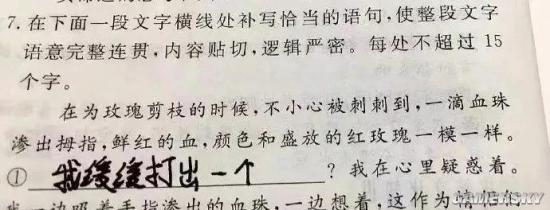 7. 在下面一段文字横线处补写恰当的语句,使整段文字
语意完整连贯,内容贴切,逻辑严密。每处不超过 15
个字。
在为玫瑰剪枝的时候,不小心被刺刺到,一滴血珠
渗出拇指,鲜红的血,颜色和盛放的红玫瑰一模一样。
① 我缓缓打出一个 ? 我在心里疑惑着。
我一边吸着手指渗出的血珠,一边想着,这作为情
GAMERSKY